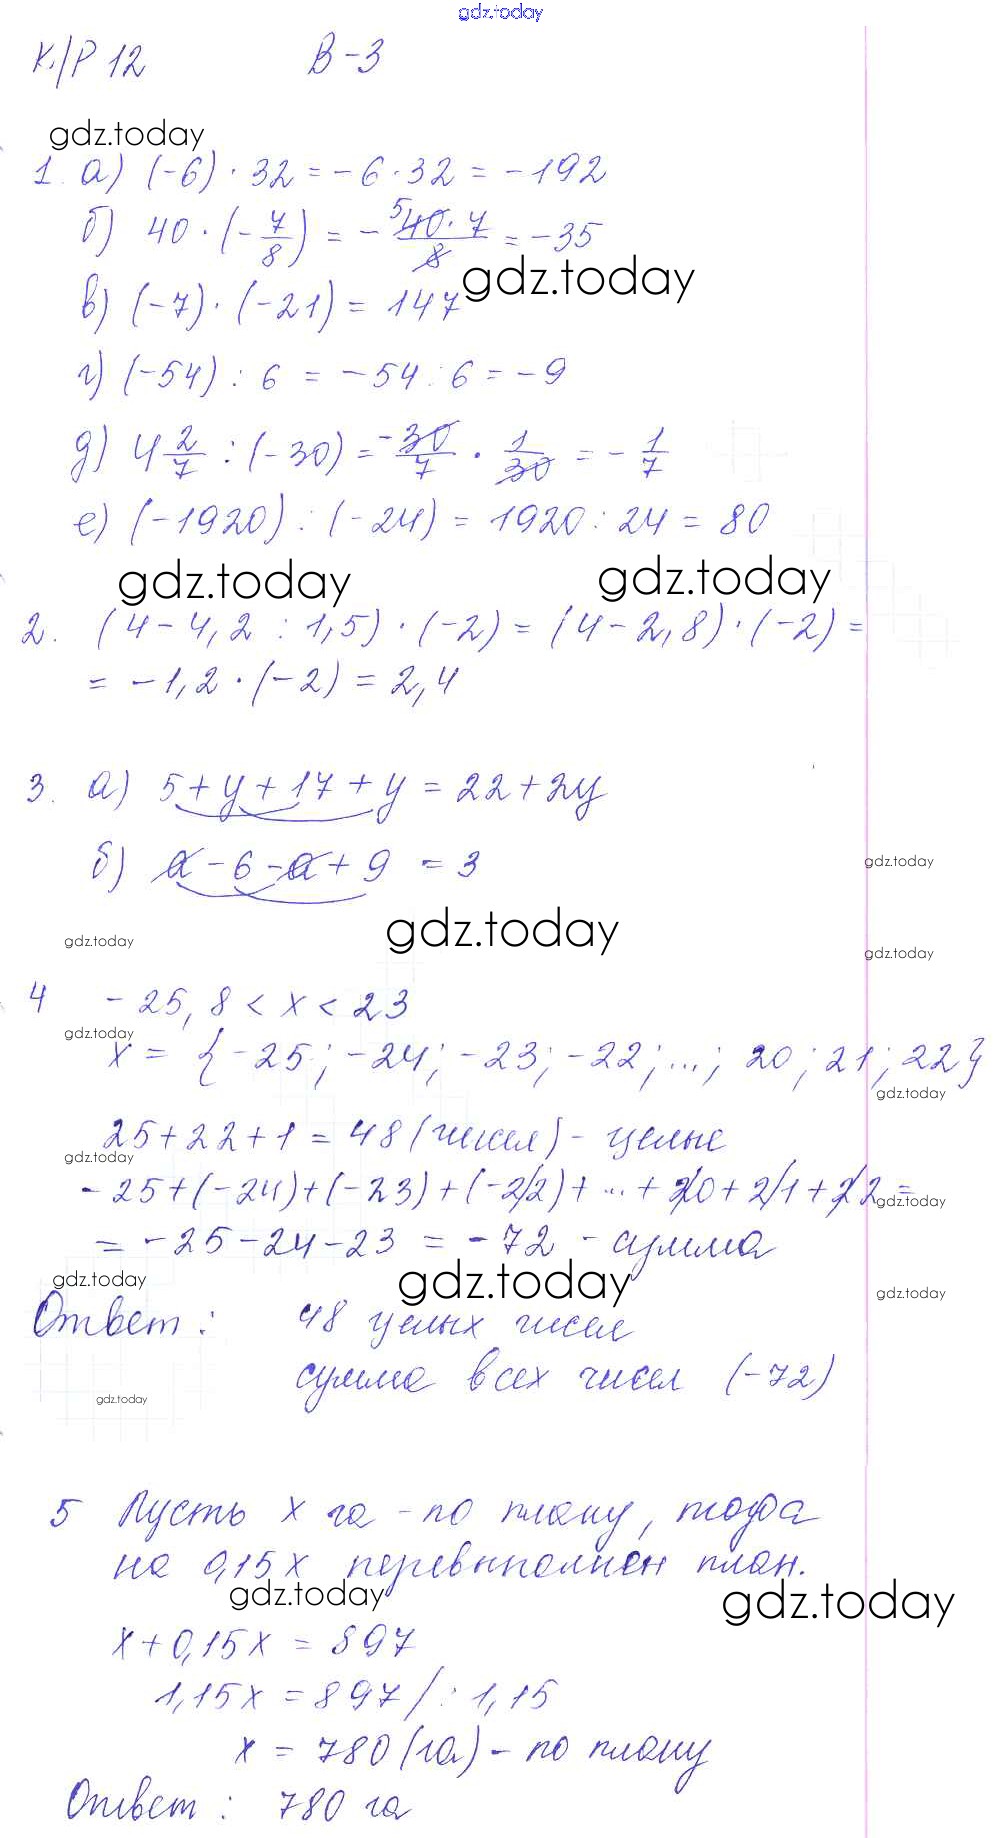 gdz.today
К/Р 12 В-3
gdz.today
1. а) (-6) · 32 = -6 · 32 = -192
б) 40 · (-7/8) = - 5 40 · 7 / 8 = -35
gdz.today
в) (-7) · (-21) = 147
г) (-54) : 6 = -54 : 6 = -9
д) 4 2/7 : (-30) = -30/7 · 1/30 = -1/7
е) (-1920) : (-24) = 1920 : 24 = 80
gdz.today gdz.today
2. (4 - 4,2 : 1,5) · (-2) = (4 - 2,8) · (-2) =
= -1,2 · (-2) = 2,4
3. а) 5 + y + 17 + y = 22 + 2y
б) a - 6 - a + 9 = 3
gdz.today
gdz.today
gdz.today
gdz.today
4 -25,8 < x < 23
gdz.today
x = {-25; -24; -23; -22; ...; 20; 21; 22}
gdz.today
25 + 22 + 1 = 48 (чисел) - целые
gdz.today
-25 + (-24) + (-23) + (-22) + ... + 20 + 21 + 22 =
gdz.today
= -25 - 24 - 23 = -72 - сумма
gdz.today gdz.today gdz.today
Ответ: 48 целых чисел
сумма всех чисел (-72)
gdz.today
5 Пусть x га - по плану, тогда
на 0,15x перевыполнен план.
gdz.today gdz.today
x + 0,15x = 897
1,15x = 897 /: 1,15
x = 780 (га) - по плану
Ответ: 780 га